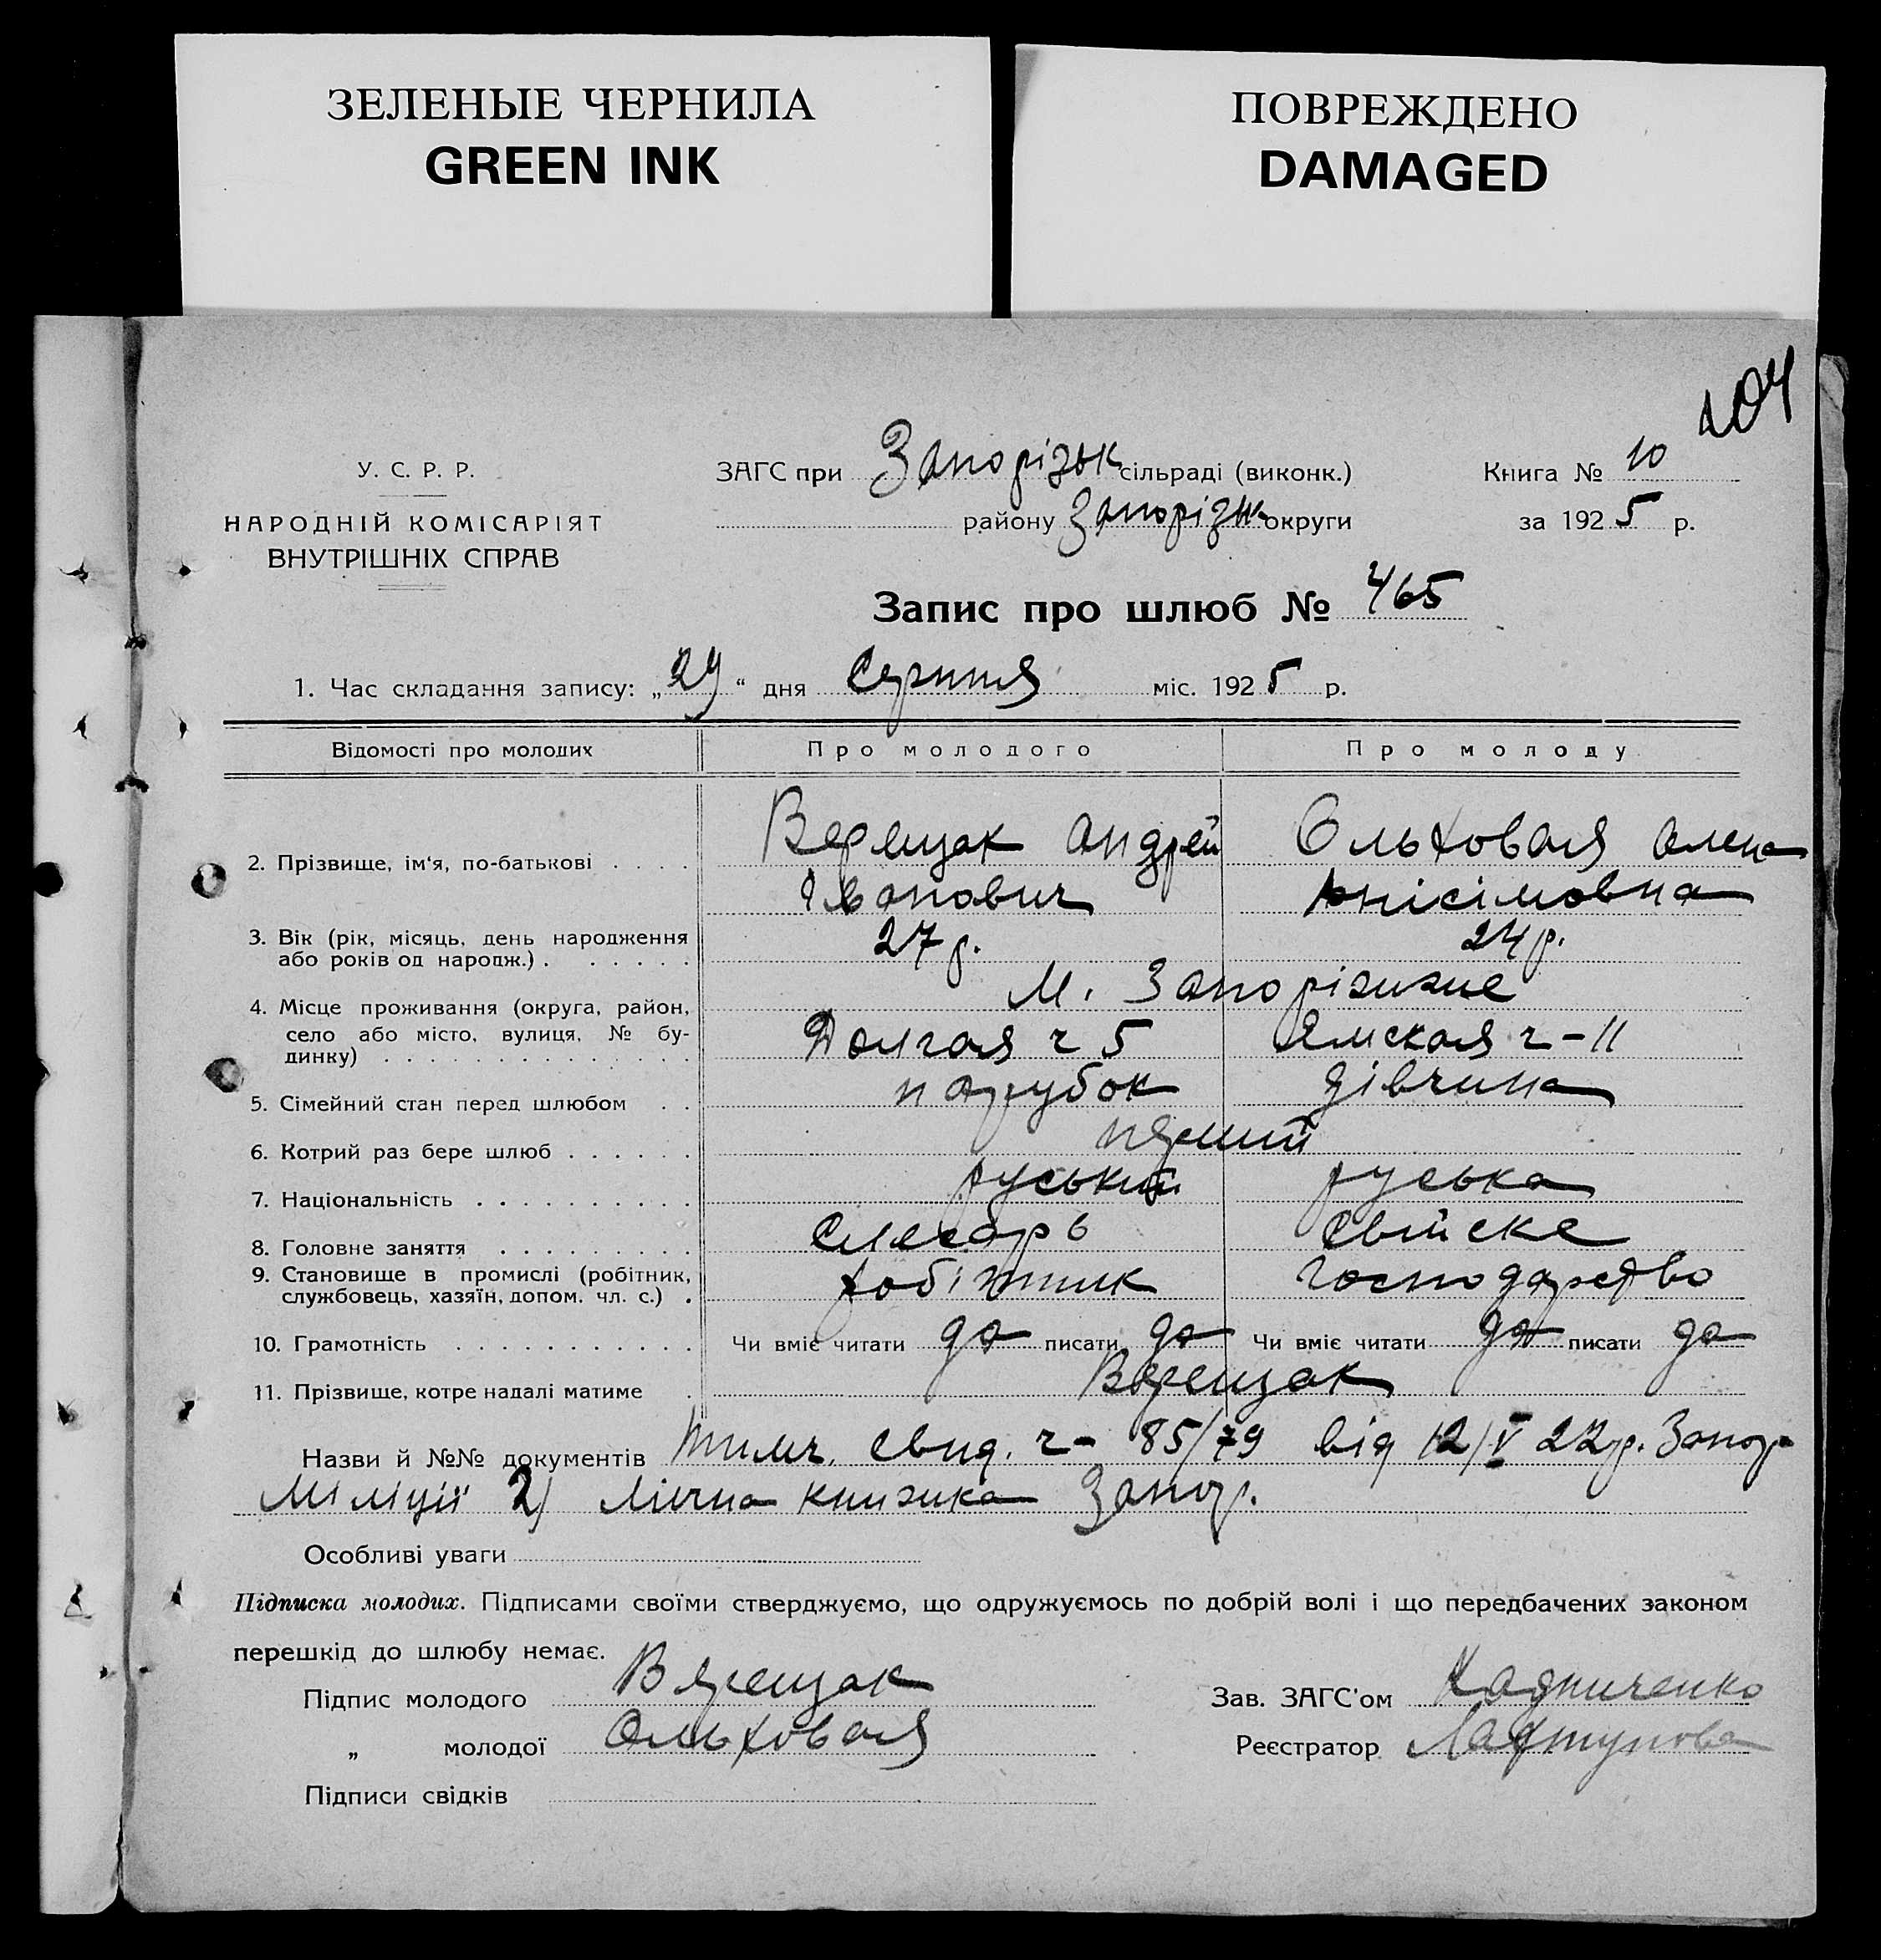 ЗЕЛЕНЫЕ ЧЕРНИЛА
GREEN INK
ПОВРЕЖДЕНО
DAMAGED
104
У. С. Р. Р.
НАРОДНІЙ КОМІСАРІЯТ
ВНУТРІШНІХ СПРАВ
ЗАГС при Запорізьк сільраді (виконк.)
району Запорізьк округи
Книга № 10
за 1925 р.
Запис про шлюб № 465
1. Час складання запису: „29“ дня Серпня міс. 1925 р.
Відомості про молодих Про молодого Про молоду
2. Прізвище, ім'я, по-батькові . . . . Верещак Андрей Ольховая Олена
Іванович Анісімовна
3. Вік (рік, місяць, день народження
або років од народж.) . . . . . . 27 р. 24 р.
М. Запоріжже
4. Місце проживання (округа, район,
село або місто, вулиця, № бу-
динку) . . . . . . . . . . . . . Долгая ч 5 Ямская ч - 11
5. Сімейний стан перед шлюбом . . парубок дівчина
6. Котрий раз бере шлюб . . . . . . перший
7. Національність . . . . . . . . . . руський руська
8. Головне заняття . . . . . . . . . Слесарь Свійске
9. Становище в промислі (робітник,
службовець, хазяїн, допом. чл. с.) . робітник господарство
10. Грамотність . . . . . . . . . . . Чи вміє читати да писати да Чи вміє читати да писати да
11. Прізвище, котре надалі матиме . Верещак
Назви й №№ документів тимч. свид. ч - 85/79 від 12/V 22 р. Запор
Міліції 2) Лічна книжка Запор.
Особливі уваги
Підписка молодих. Підписами своїми стверджуємо, що одружуємось по добрій волі і що передбачених законом
перешкід до шлюбу немає.
Підпис молодого Верещак
„ молодої Ольховая
Підписи свідків
Зав. ЗАГС'ом
Реєстратор